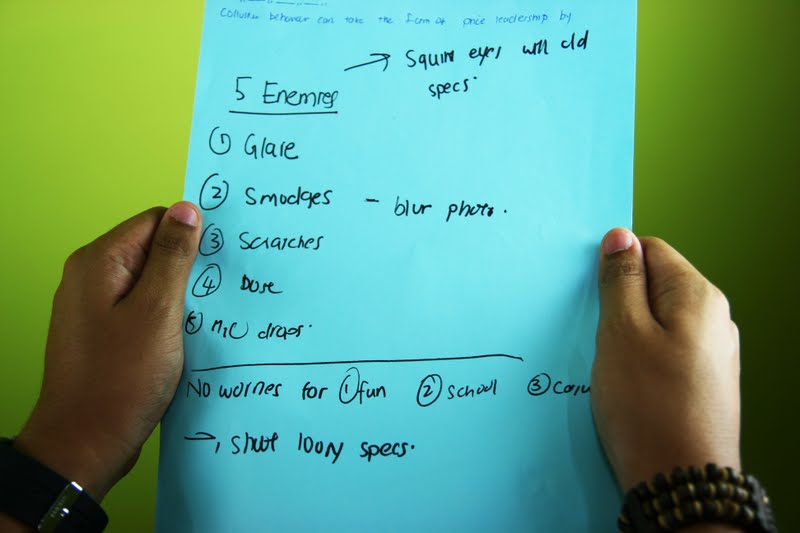 Collusive behaviour can take the form of price leadership by
→ Squint eyes with old
specs.
5 Enemies
① Glare
② Smudges - blur photo.
③ Scratches
④ Dust
⑤ drops.
No worries for ① fun ② School ③
→ specs.